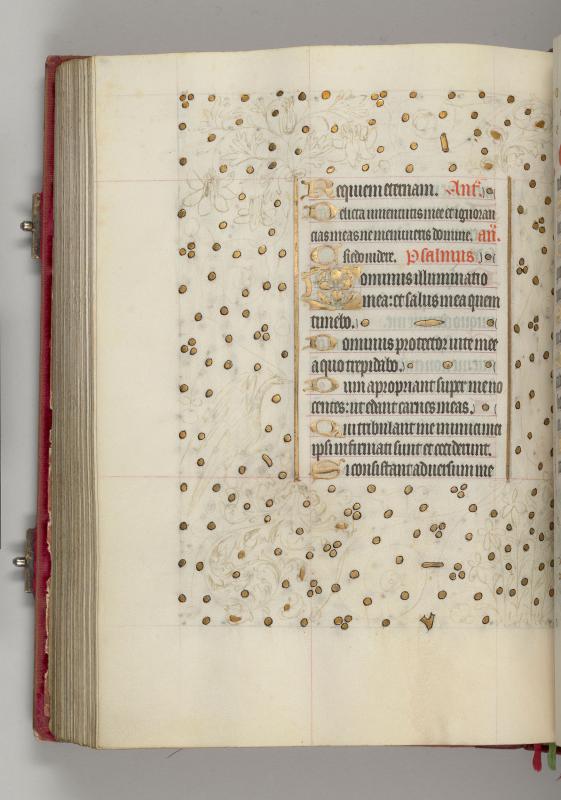 Requiem eternam. Ant.
Delicta iuuentutis mee et ignoran
cias meas ne memineris domine. an.
Credo videre. psalmus.
Dominus illuminatio
mea: et salus mea quem
timebo.
Dominus protector uite mee
a quo trepidabo.
Dum apropriant super me no
centes: ut edant carnes meas.
Qui tribulant me inimici mei
ipsi infirmati sunt et ceciderunt.
Si consistant aduersum me